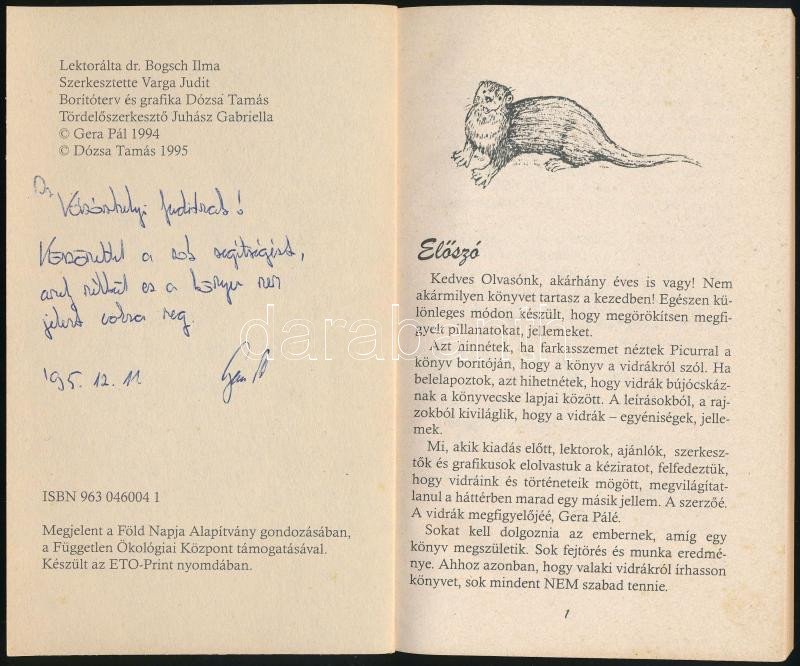 Lektorálta dr. Bogsch Ilma
Szerkesztette Varga Judit
Borítóterv és grafika Dózsa Tamás
Tördelőszerkesztő Juhász Gabriella
© Gera Pál 1994
© Dózsa Tamás 1995
Dr. Vásárhelyi Juditnak!
Köszönettel a sok segítségért,
amely nélkül ez a könyv nem
jelent volna meg.
'95. 12. 11
ISBN 963 046004 1
Megjelent a Föld Napja Alapítvány gondozásában,
a Független Ökológiai Központ támogatásával.
Készült az ETO-Print nyomdában.
Előszó
Kedves Olvasónk, akárhány éves is vagy! Nem
akármilyen könyvet tartasz a kezedben! Egészen kü-
lönleges módon készült, hogy megörökítsen megfi-
gyelt pillanatokat, jellemeket.
Azt hinnétek, ha farkasszemet néztek Picurral a
könyv borítóján, hogy a könyv a vidrákról szól. Ha
belelapoztok, azt hihetnétek, hogy vidrák bújócskáz-
nak a könyvecske lapjai között. A leírásokból, a raj-
zokból kiviláglik, hogy a vidrák – egyéniségek, jelle-
mek.
Mi, akik kiadás előtt, lektorok, ajánlók, szerkesz-
tők és grafikusok elolvastuk a kéziratot, felfedeztük,
hogy vidráink és történeteik mögött, megvilágítat-
lanul a háttérben marad egy másik jellem. A szerzőé.
A vidrák megfigyelőjéé, Gera Pálé.
Sokat kell dolgoznia az embernek, amíg egy
könyv megszületik. Sok fejtörés és munka eredmé-
nye. Ahhoz azonban, hogy valaki vidrákról írhasson
könyvet, sok mindent NEM szabad tennie.
1
darabanth